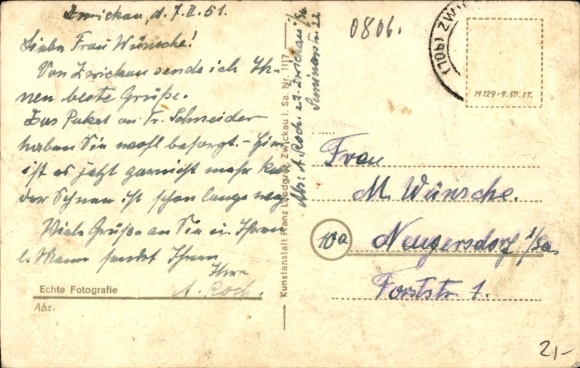 Zwickau, d. 7.II.51.
Liebe Frau Wünsche!
Von Zwickau sende ich Ih-
nen beste Grüße.
Das Paket an Fr. Schneider
haben Sie wohl besorgt. – Hier
ist es jetzt garnicht mehr kalt
der Schnee ist schon lange weg
Viele Grüße an Sie u. Ihren
l. Mann sendet Ihnen
Ihre
A. Roch.
Echte Fotografie
Abs.
Kunstanstalt Franz Landgraf, Zwickau i. Sa. Nr. 1117
Abs: A. Roch. 22. Zwickau i/Sa
Seminarstr. 22
0806.
(10b) ZW
M 129 - 9. 50. IT.
Frau
M. Wünsche.
10a
Neugersdorf i/Sa.
Forststr 1.
21,-